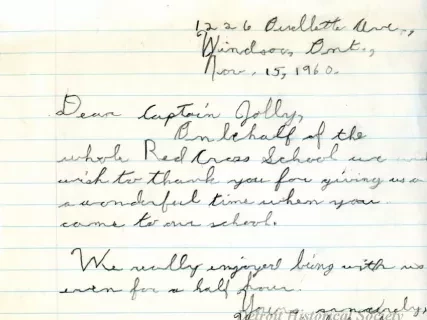 1226 Ouellette Ave.,
Windsor, Ont.,
Nov. 15, 1960.
Dear Captain Jolly,
On behalf of the
whole Red Cross School we
wish to thank you for giving us a
a wonderful time when you
came to our school.
We really enjoyed being with us
even for a half hour.
Yours sincerely,
Detroit Historical Society